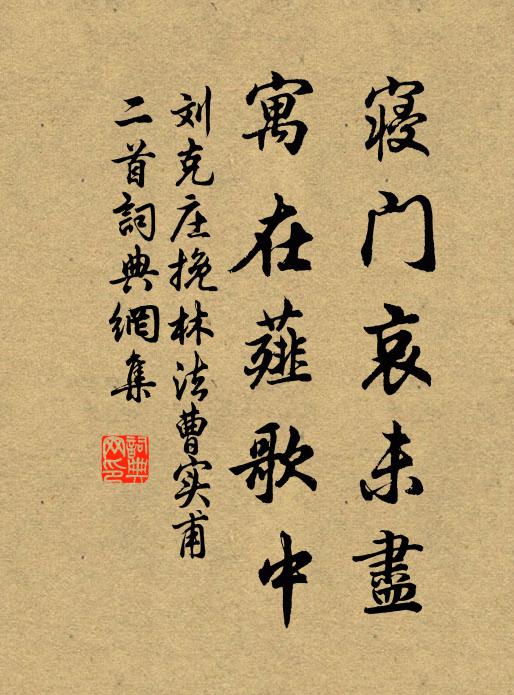 寝門哀未盡
寓在薤歌中
刘克庄挽林法曹实甫
二首詞典網集
詞典网印